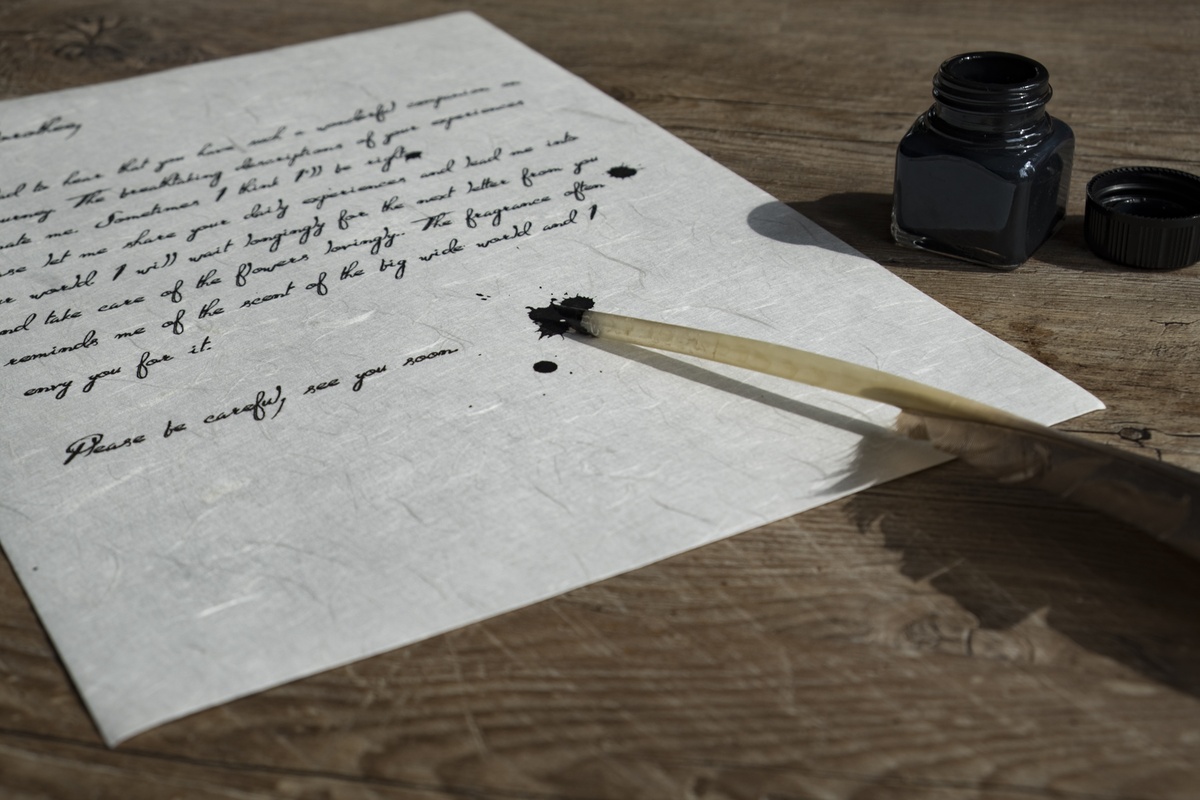 to hear that you have had a wonderful companion on
The breathtaking descriptions of your experiences
me. Sometimes I think I'll be right
let me share your daily experiences and lead me into
world I will wait longingly for the next letter from you
take care of the flowers lovingly.. The fragrance often
reminds me of the scent of the big wide world and I
envy you for it.
Please be careful, see you soon